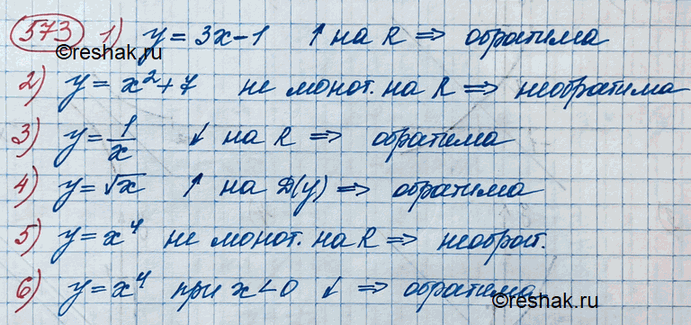 573 1) y = 3x - 1 ↑ на R ⇒ обратима
©reshak.ru
2) y = x² + 7 не монот. на R ⇒ необратима
3) y = 1/x ↓ на R ⇒ обратима
4) y = √x ↑ на D(y) ⇒ обратима
5) y = x⁴ не монот. на R ⇒ необрат.
6) y = x⁴ при x < 0 ↓ ⇒ обратима
©reshak.ru